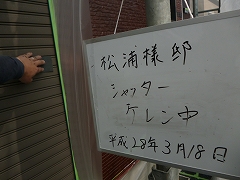 松浦様邸
シャッター
ケレン中
平成28年3月18日